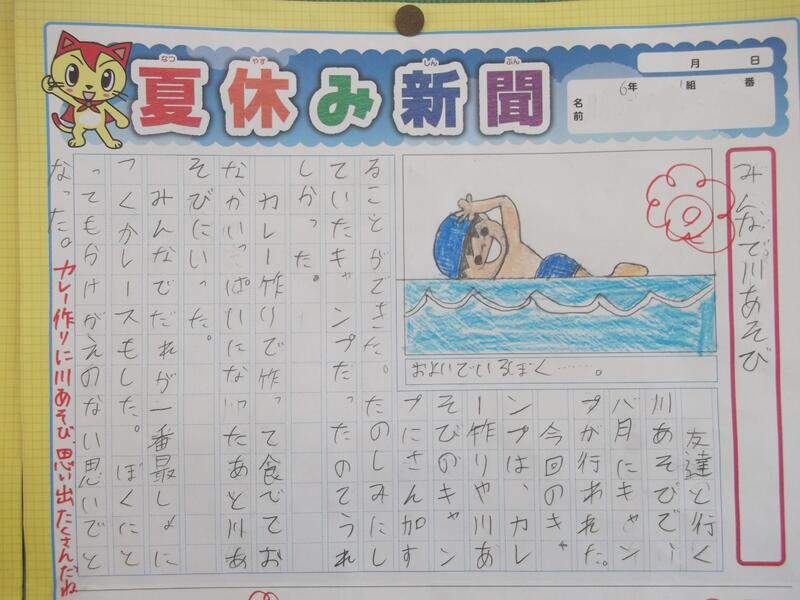 夏休み新聞
なつ
やす
しん
ぶん
月 日
6年 1組 番
名前
みんなで川あそび
友達と行く
川あそびで、
八月にキャン
プが行われた。
今回のキャ
ンプは、カレ
ー作りや川あ
そびのキャン
プにさん加す
ることができた。たのしみにし
ていたキャンプだったのでうれ
しかった。
カレー作りで作って食べてお
なかいっぱいになったあと川あ
そびにいった。
みんなでだれが一番最しょに
つくかレースもした。ぼくにと
ってもかけがえのない思いでと
なった。
およいでいるぼく……。
カレー作りに川あそび、思い出たくさんだね